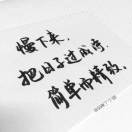 慢下来,
把日子过成诗,
简单而精致。